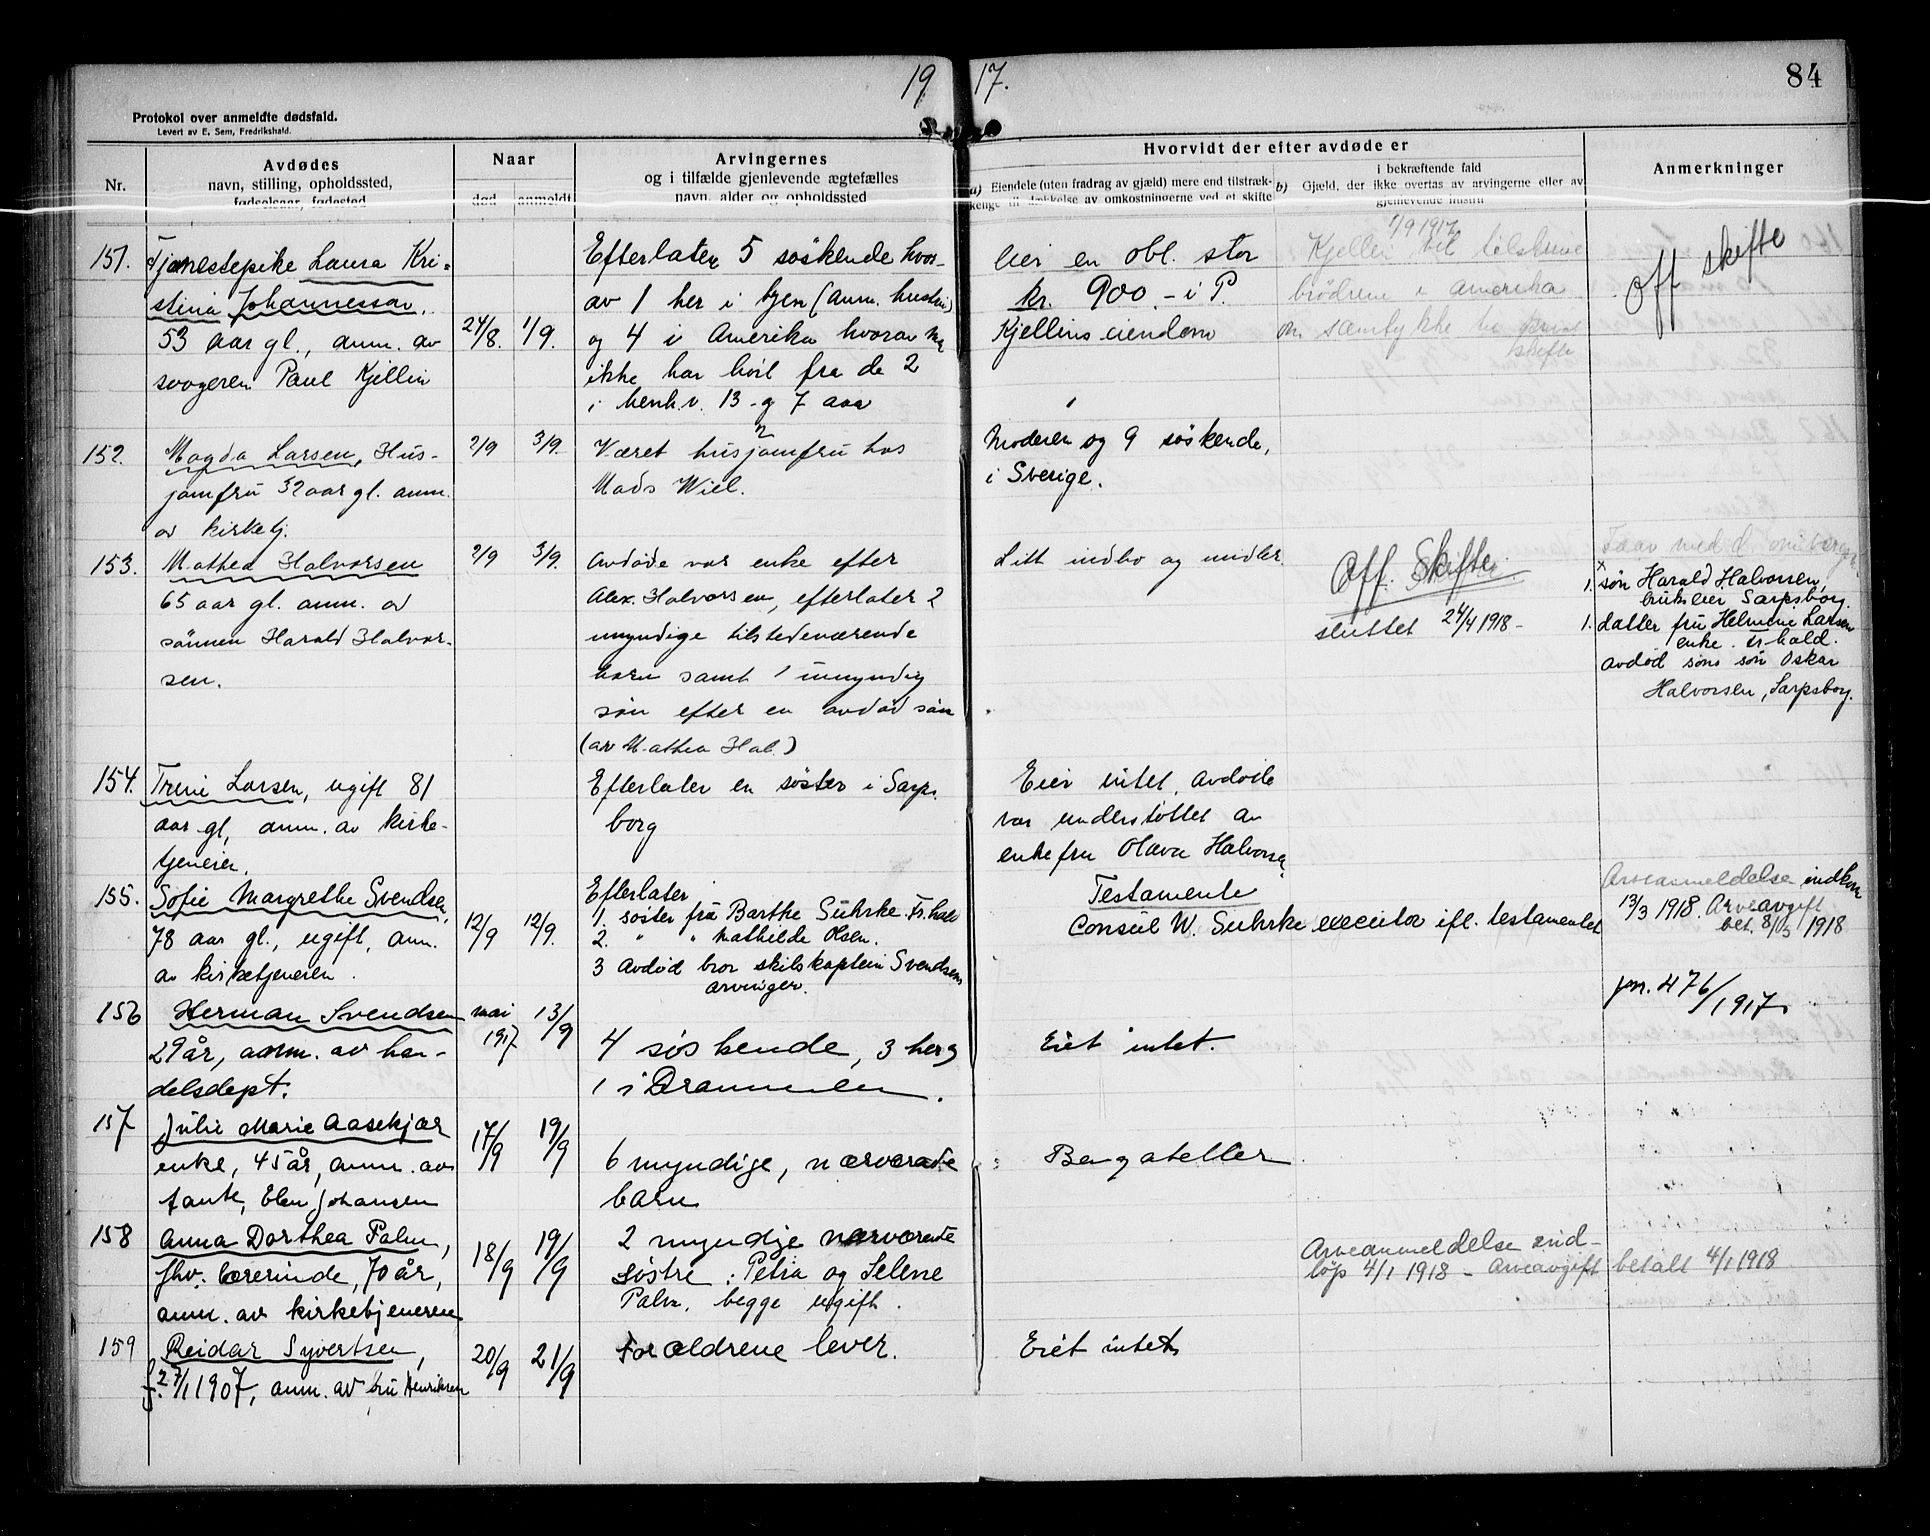 1917.
84
Protokol over anmeldte dødsfald.
Levert av E. Sem, Fredrikshald.
Nr.
Avdødes
navn, stilling, opholdssted,
fødselsaar, fødested
Naar
død
anmeldt
Arvingernes
og i tilfælde gjenlevende ægtefælles
navn, alder og opholdssted
Hvorvidt der efter avdøde er
a) Eiendele (uten fradrag av gjæld) mere end tilstræk-
kelige til dækkelse av omkostningerne ved et skifte
i bekræftende fald
b) Gjæld, der ikke overtas av arvingerne eller av
gjenlevende hustru
Anmerkninger
151.
Tjenestepike Laura Kri-
stina Johannessen,
53 aar gl., anm. av
svogeren Paul Kjellin
24/8.
1/9.
Efterlater 5 søskende hvor-
av 1 her i byen (anm. hustru)
og 4 i Amerika hvorav
ikke har hørt fra de 2
i henh.v. 13 og 7 aar
Eier en obl. stor
kr. 900.- i P.
Kjellins eiendom
1/9 1917
Kjellin vil tilskrive
brødrene i Amerika
om samtykke til privat
skifte
Off skifte
152.
Magda Larsen, Hus-
jomfru 32 aar gl. anm.
av kirketj.
2/9
3/9.
Været husjomfru hos
Mads Wiel.
Moderen og 9 søskende,
i Sverige.
153.
Mathea Halvorsen
65 aar gl. anm. av
sønnen Harald Halvor-
sen.
2/9
3/9.
Avdøde var enke efter
Alex. Halvorsen, efterlater 2
myndige tilstedeværende
barn samt 1 umyndig
søn efter en avdød søn
(av Mathea Hal.)
Litt indbo og midler
Off. Skifte.
sluttet 24/4 1918 -
1. søn Harald Halvorsen,
brukseier Sarpsborg.
1. datter fru Helmine Larsen
enke. Fr.hald.
avdød søns søn Oskar
Halvorsen, Sarpsborg.
154.
Trine Larsen, ugift 81
aar gl, anm. av kirke-
tjeneren.
Efterlater en søster i Sarps-
borg
Eier intet, avdøde
var understøttet av
enkefru Olava Halvorsen
155.
Sofie Margrethe Svendsen,
78 aar gl., ugift, anm.
av kirketjeneren.
12/9
12/9.
Efterlater
1. søster fru Barthe Suhrke Fr.hald
2. " " Mathilde Olsen.
3 Avdød bror skibskaptein Svendsens
arvinger.
Testamente
Consul W. Suhrke executor ifl. testamentet
Arveanmeldelse indkom
13/3 1918. Arveavgift
bet. 8/5 1918
jnr. 476/1917.
156
Herman Svendsen
29 år, anm. av han-
delsdept.
mai
1917
13/9
4 søskende, 3 her og
1 i Drammen.
Eiet intet.
157
Julie Marie Aasekjær
enke, 45 år, anm. av
tante, Elen Johansen
17/9
19/9
6 myndige, nærværende
barn
Bagateller
158
Anna Dorthea Palm,
fhv. lærerinde, 70 år,
anm. av kirketjeneren
18/9
19/9
2 myndige nærværende
søstre: Petra og Selene
Palm, begge ugift.
Arveanmeldelse ind-
løp 4/1 1918 - Arveavgift betalt 4/1 1918
159
Reidar Syvertsen,
f. 27/1 1907, anm. av fru Henriksen
20/9
21/9
Forældrene lever.
Eiet intet